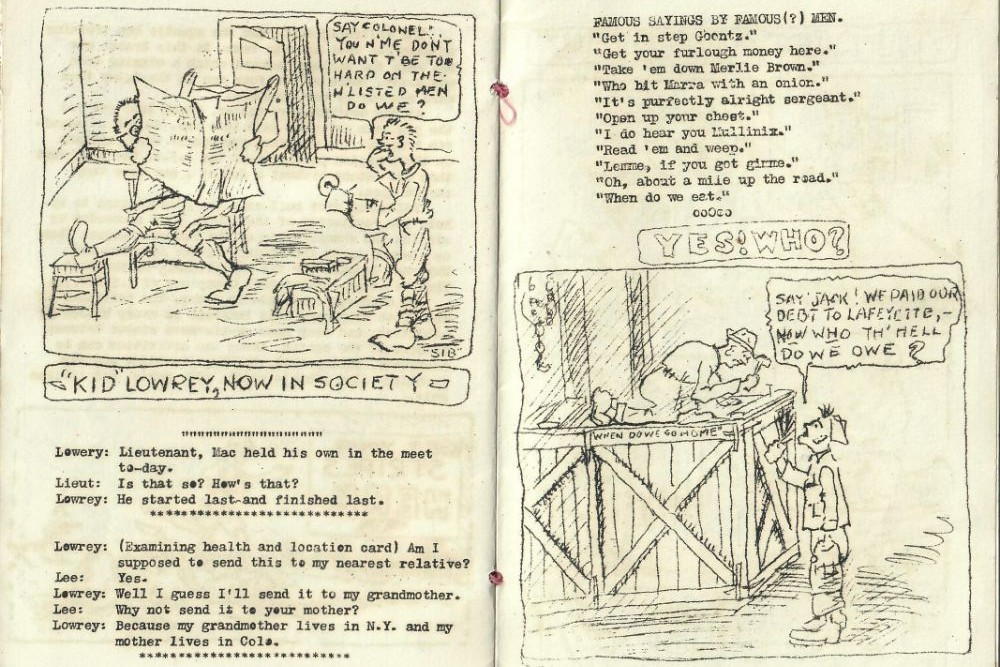 SAY COLONEL:
YOU N'ME DON'T
WANT T'BE TOO
HARD ON THE
N'LISTED MEN
DO WE?
SIB
"KID" LOWREY, NOW IN SOCIETY
""""""""""""""""""""
Lowery: Lieutenant, Mac held his own in the meet
to-day.
Lieut: Is that so? How's that?
Lowrey: He started last-and finished last.
***************************
Lowrey: (Examining health and location card) Am I
supposed to send this to my nearest relative?
Lee: Yes.
Lowrey: Well I guess I'll send it to my grandmother.
Lee: Why not send it to your mother?
Lowrey: Because my grandmother lives in N.Y. and my
mother lives in Colo.
**************************
FAMOUS SAYINGS BY FAMOUS(?) MEN.
"Get in step Goontz."
"Get your furlough money here."
"Take 'em down Merlie Brown."
"Who hit Marra with an onion."
"It's purfectly alright sergeant."
"Open up your chest."
"I do hear you Mullinix."
"Read 'em and weep."
"Lemme, if you got gimme."
"Oh, about a mile up the road."
"When do we eat."
ooOoo
YES! WHO?
SAY 'JACK! WE PAID OUR
DEBT TO LAFEYETTE,-
NOW WHO TH' HELL
DO WE OWE?
"WHEN DO WE GO HOME"